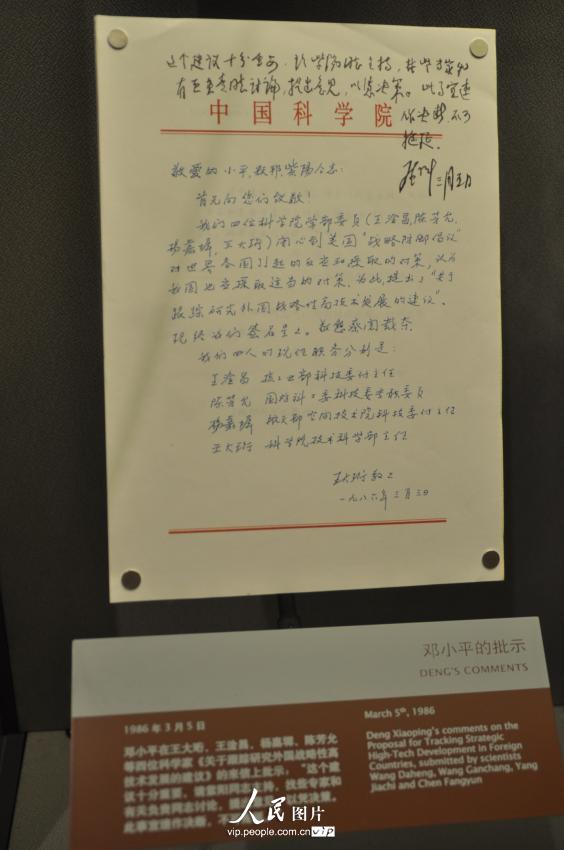 这个建议十分重要
有
负责同志讨论，提出意见，以凭决策。此事宜速
作决断，不可
拖延。
三月五日
中国科学院
敬爱的小平、耀邦、紫阳同志：
首先向您们致敬！
我们四位科学院学部委员（王淦昌、陈芳允、
杨嘉墀、王大珩）关心到美国“战略防御倡议”
对世界各国引起的反应和采取的对策，认为
我国也应采取适当的对策，为此，提出了“关于
跟踪研究外国战略性高技术发展的建议”。
现经我们签名呈上。敬恳察阅裁夺。
我们四人的现任职务分别是：
王淦昌 核工业部科技委付主任
陈芳允 国防科工委科技委专职委员
杨嘉墀 航天部空间技术院科技委付主任
王大珩 科学院技术科学部主任
王大珩敬上
一九八六年三月三日
邓小平的批示
DENG'S COMMENTS
1986年3月5日
邓小平在王大珩、王淦昌、杨嘉墀、陈芳允
等四位科学家《关于跟踪研究外国战略性高
技术发展的建议》的来信上批示，“这个建
议十分重要，请紫阳同志主持，找些专家和
有关负责同志讨论，提出意见，以凭决策。
此事宜速作决断，不
March 5th, 1986
Deng Xiaoping's comments on the
Proposal for Tracking Strategic
High-Tech Development in Foreign
Countries, submitted by scientists
Wang Daheng, Wang Ganchang, Yang
Jiachi and Chen Fangyun
人民图片
vip.people.com.cn VIP